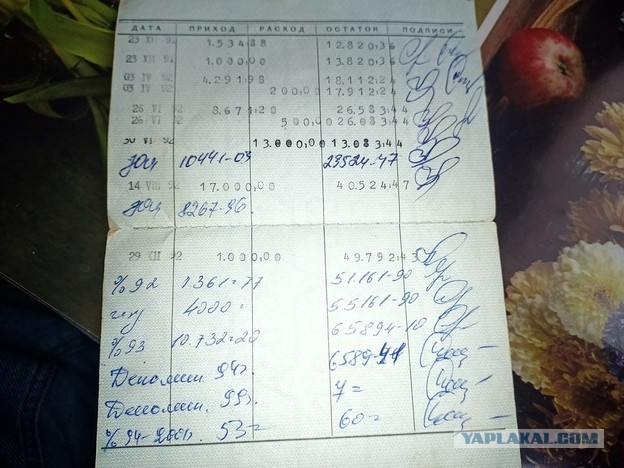 ДАТА ПРИХОД РАСХОД ОСТАТОК ПОДПИСИ
23 XII 91 1.534,88 12.820,36
23 XII 91 1.000,00 13.820,36
03 IV 92 4.291,98 18.112,34
03 IV 92 200,00 17.912,34
26 VI 92 8.671,20 26.583,44
26 VI 92 500,00 26.083,44
30 VI 92 13.000,00 13.083,44
10441-03 23524-47
14 VIII 92 17.000,00 40.524,47
8267-96
29 XII 92 1.000,00 49.792,43
% 92 1.361=77 51.161-90
4000= 55161-90
% 93 10.732=20 65894-10
Деномин. 94г.
Деномин. 99г. 7=
53= 60=
YAPLAKAL.COM